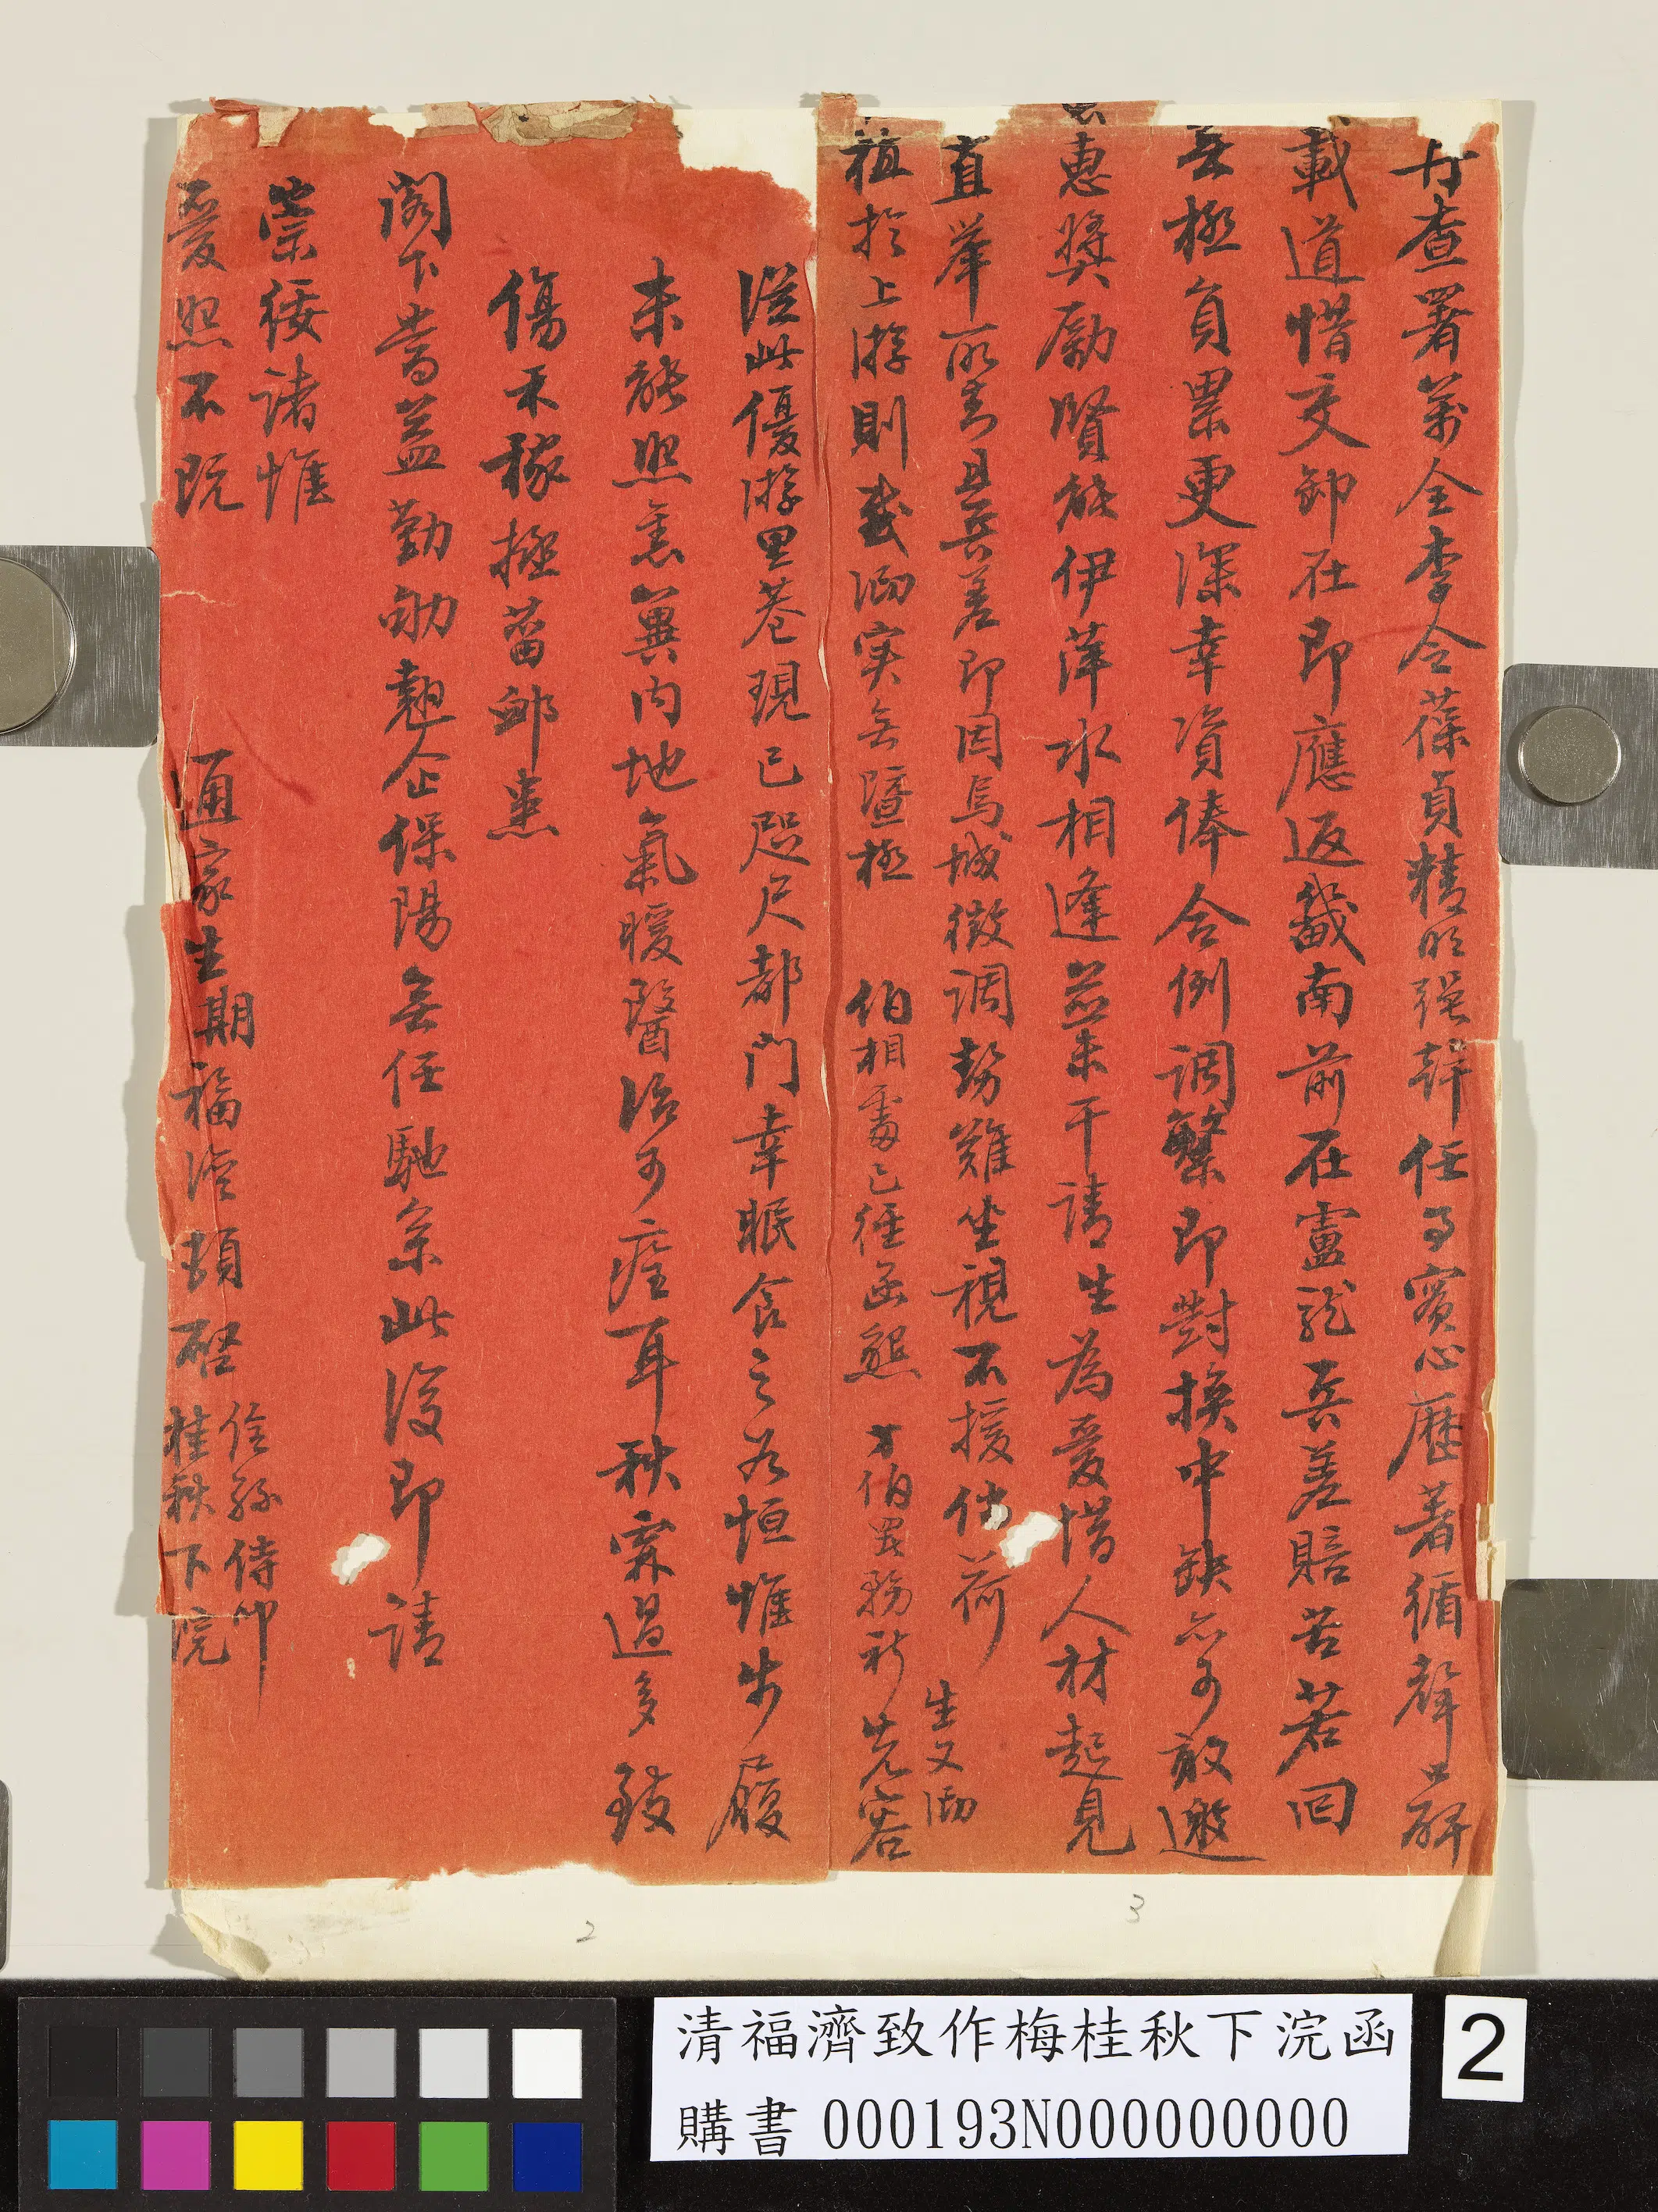 查署萬全李令葆貞精明強幹任事實心歷著循聲口碑
載道惜交卸在即應返畿南前在盧龍兵差賠苦若回
無極負累更深幸資俸合例調繁即對換中缺亦可敢邀
惠獎勵賢能伊萍水相逢並未干請生為愛惜人材起見
直舉所素且兵差即因烏城徵調勢難坐視不援倘荷
生又泐
植於上游則我泐实無暨極 伯相處已徑函懇 方伯
先容
從此優游里巷現已咫尺都門幸眠食之如恒惟步履
未能照舊冀內地氣暖醫治可痊耳秋霖過多致
傷禾稼拯菑卹患
閣下耆蓋勤劬翹企保陽無任馳系此復即請
崇綏諸惟
愛照不既
通家生期福濟頓啓 侄孫侍叩
桂秋下浣
2
3
清福濟致作梅桂秋下浣函
購書 000193N000000000
2